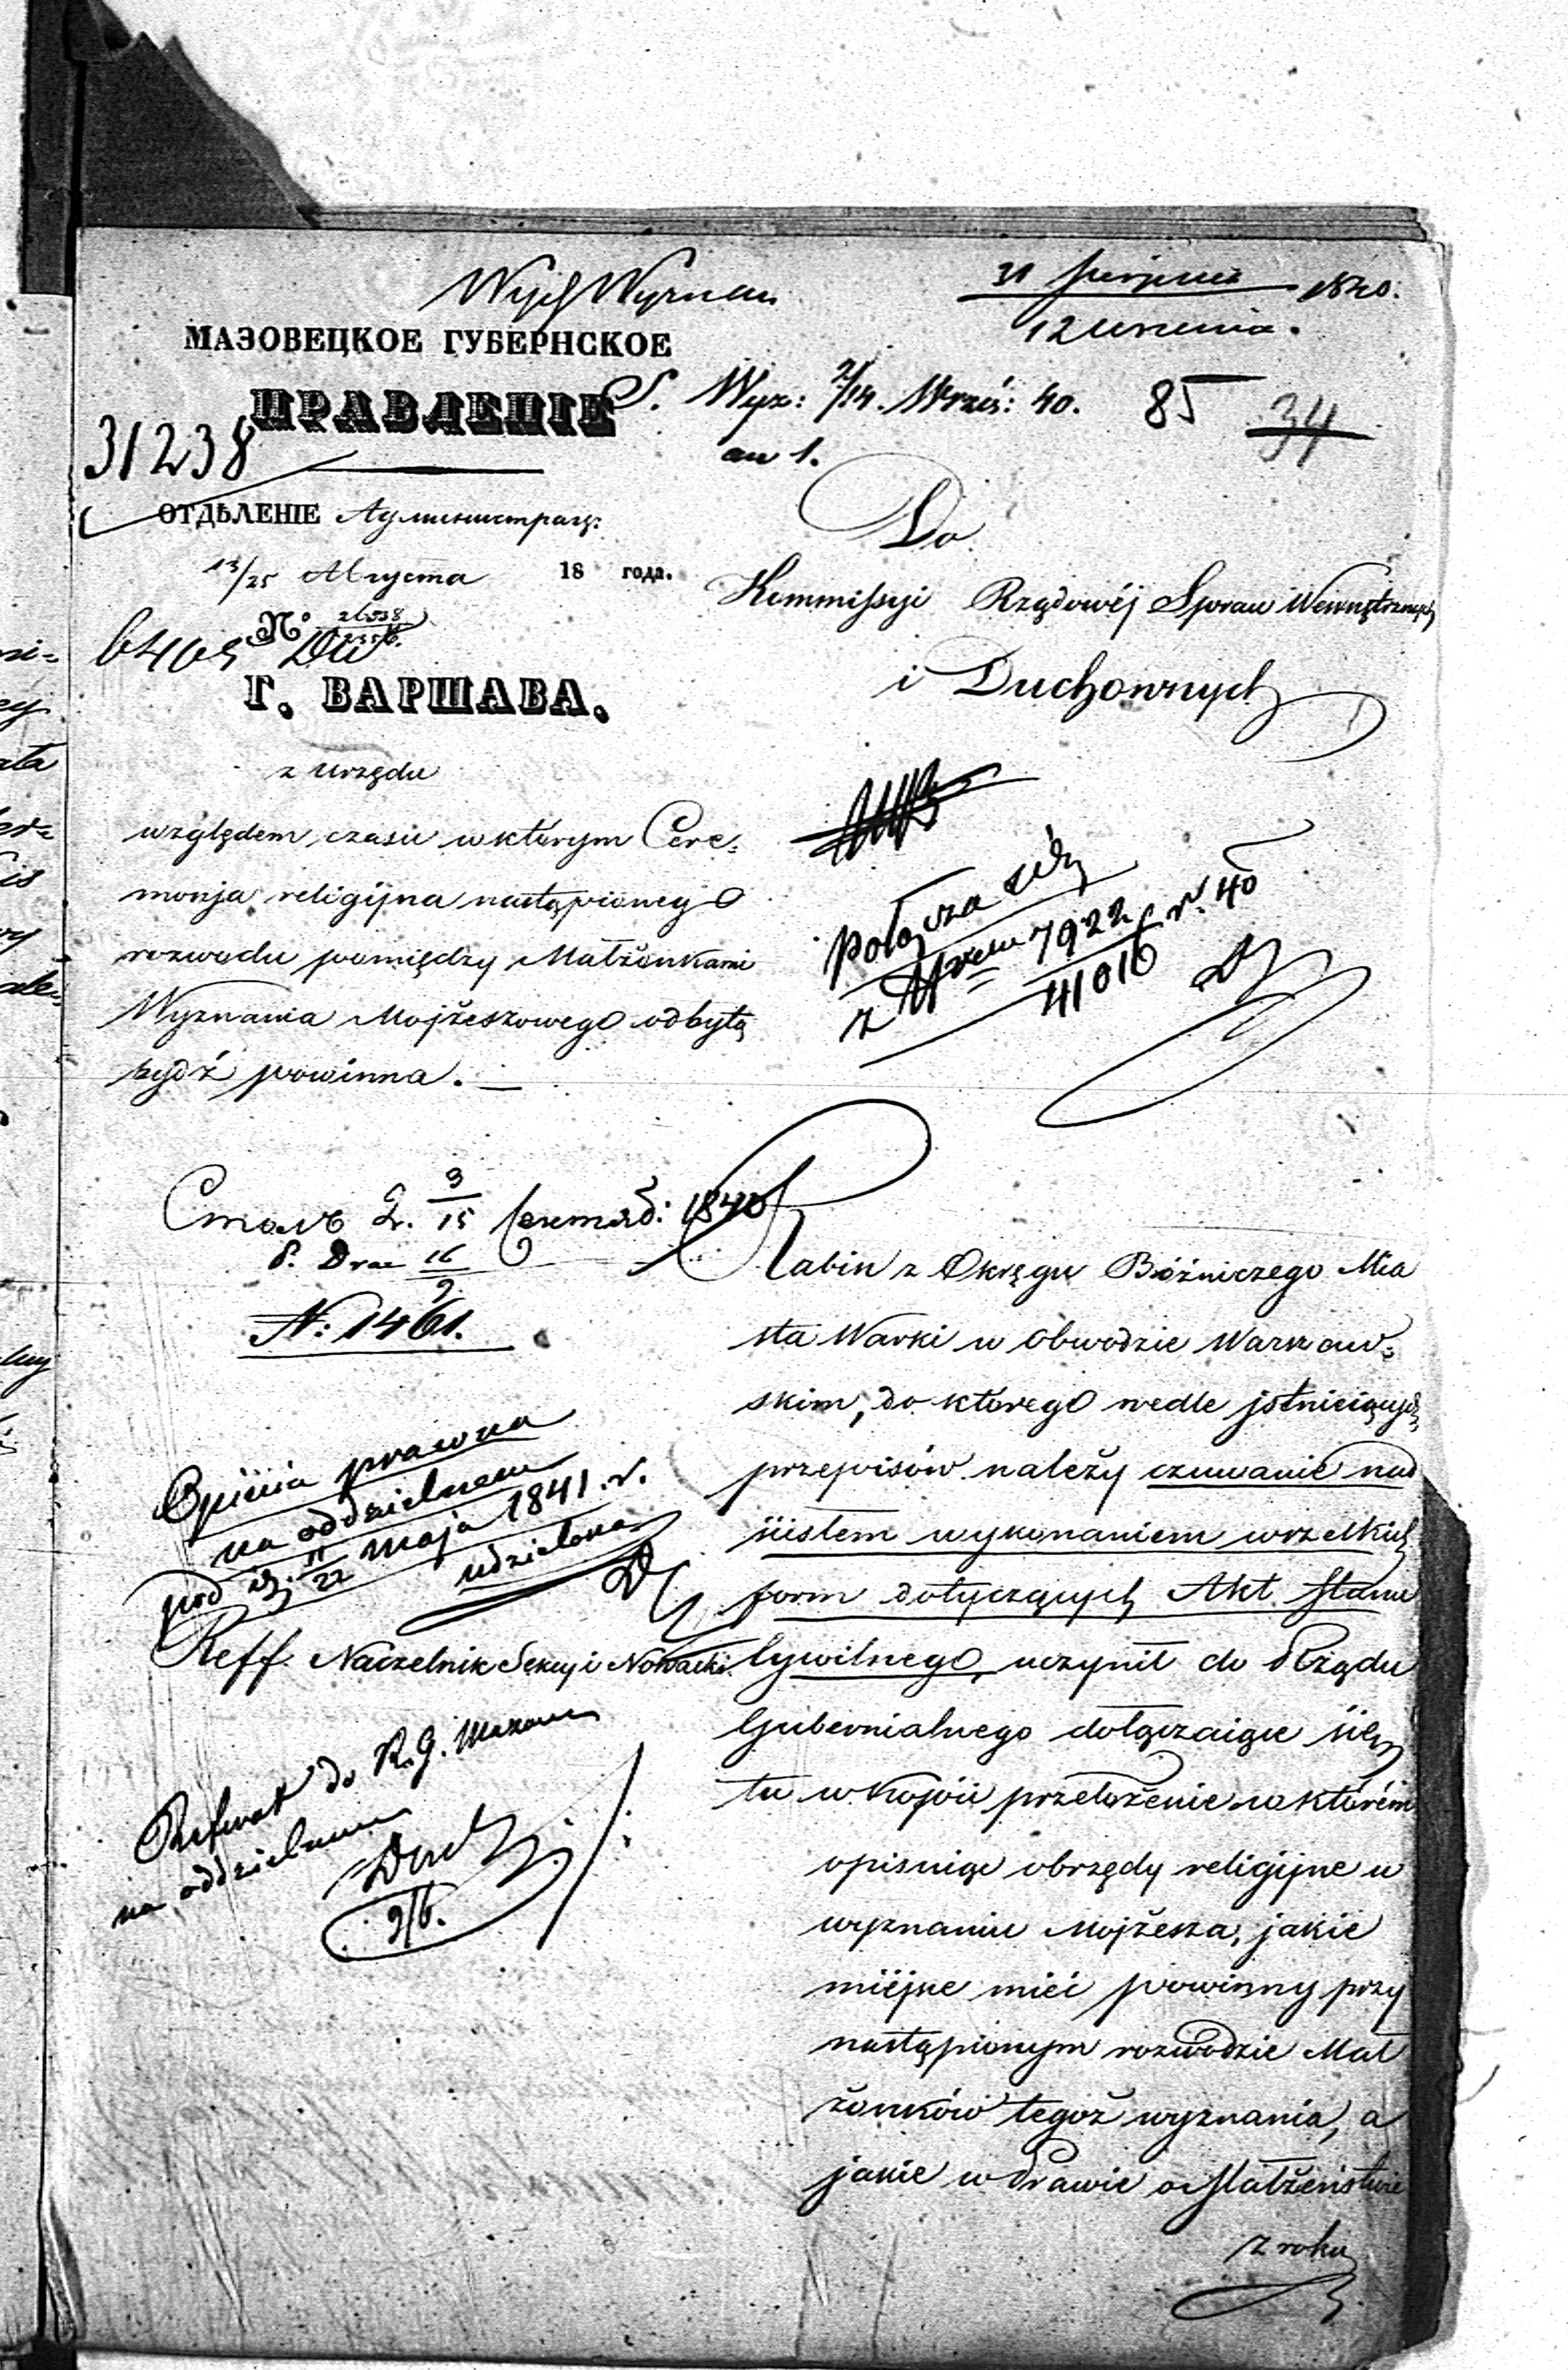 Wydz Wyznań
31 Sierpnia 1840.
12 Września.
МАЗОВЕЦКОЕ ГУБЕРНСКОЕ
ПРАВЛЕНІЕ
S. Wyz: 2/14. Wrześ: 40.
85 34
31238
ad 1.
ОТДѢЛЕНІЕ Администрац:
13/25 Августа 18 года.
№
Г. ВАРШАВА.
Do
Kommissyi Rządowéj Spraw Wewnętrznych
i Duchownych
z Urzędu
względem czasu w którym Cere=
monja religijna nastąpionego
rozwodu pomiędzy Małżonkami
Wyznania Mojżeszowego odbytą
bydź powinna. —
Połącza się
z Nrem 7922 r. 40
41016
3/15 1840
16/9
N: 1461.
Opinia prawna
na oddzielnem
pod d. 11/22 maja 1841. r.
udzielona
Reff. Naczelnik Sekcyi Nowacki
Referat do R. G. Mazow
na oddzielnem
9/6.
Rabin z Okręgu Bóżniczego Mia
sta Warki w Obwodzie Warszaw=
skim, do którego wedle jstniejących
przepisów należy czuwanie nad
ścisłem wykonaniem wszelkich
form dotyczących Akt Stanu
Cywilnego, uczynił do Rządu
Gubernialnego dołączaiące się
tu w kopii przełożenie w którém
opisuiąc obrzędy religijne w
wyznaniu Mojżesza, jakie
miejsce mieć powinny przy
nastąpionym rozwodzie Mał
żonków tegoż wyznania, a
jakie w Prawie o Małżeństwie
z roku